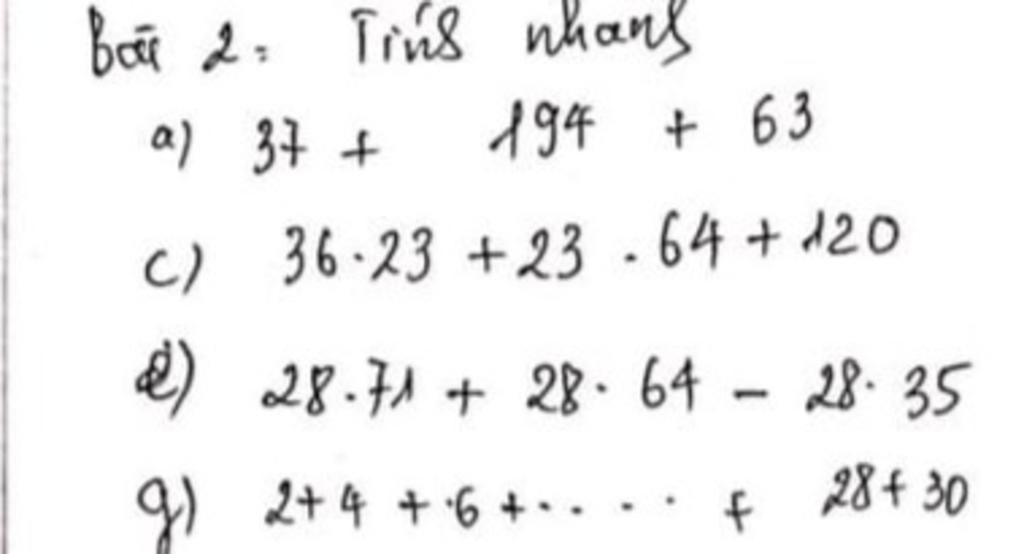 Bài 2: Tính nhanh
a) 37 + 194 + 63
c) 36.23 + 23 . 64 + 120
e) 28.71 + 28. 64 - 28. 35
g) 2+ 4 + .6 + ..... + 28 + 30